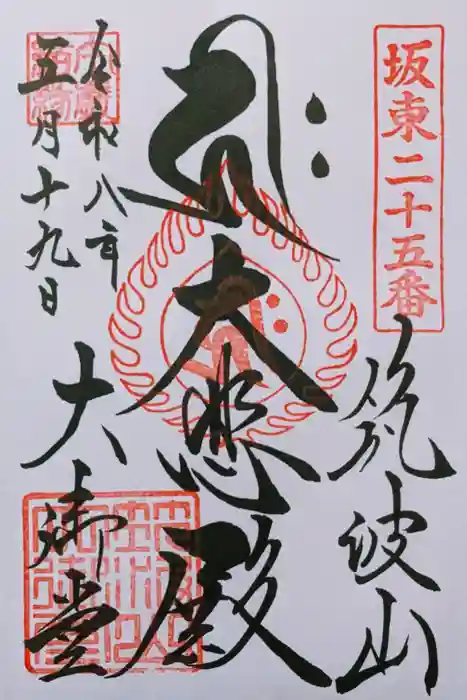 坂東二十五番
筑波山
大悲殿
令和八年
五月十九日
大御堂